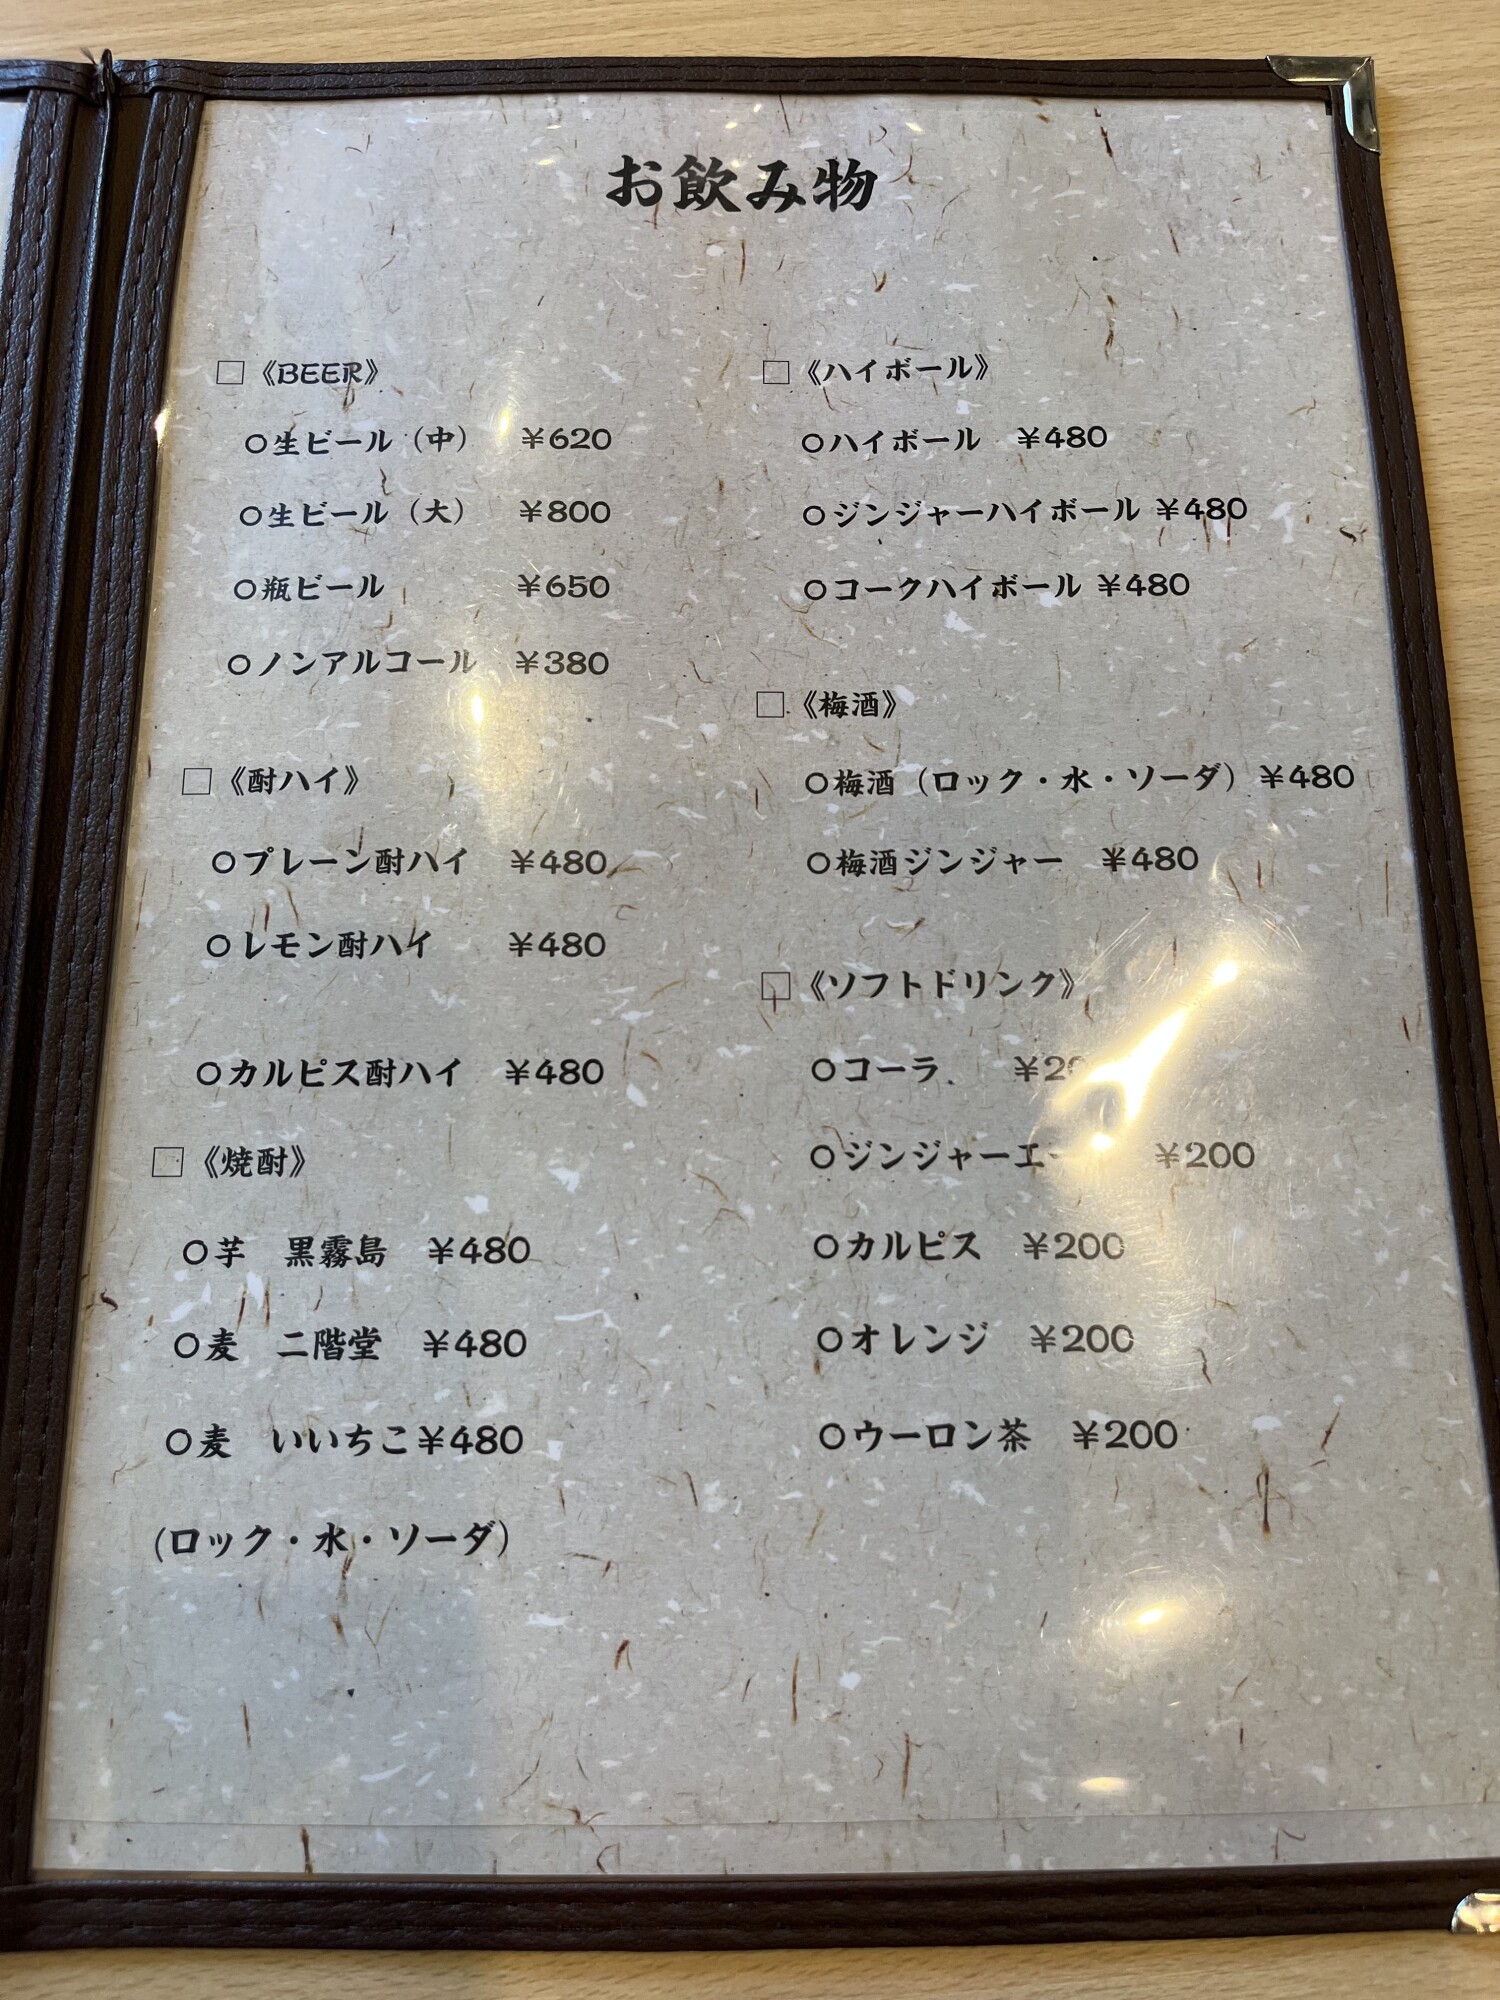 お飲み物
□《BEER》
○生ビール（中） ￥620
○生ビール（大） ￥800
○瓶ビール ￥650
○ノンアルコール ￥380
□《酎ハイ》
○プレーン酎ハイ ￥480
○レモン酎ハイ ￥480
○カルピス酎ハイ ￥480
□《焼酎》
○芋 黒霧島 ￥480
○麦 二階堂 ￥480
○麦 いいちこ￥480
(ロック・水・ソーダ)
□《ハイボール》
○ハイボール ￥480
○ジンジャーハイボール ￥480
○コークハイボール ￥480
□《梅酒》
○梅酒（ロック・水・ソーダ）￥480
○梅酒ジンジャー ￥480
□《ソフトドリンク》
○コーラ
○ジンジャーエー ￥200
○カルピス ￥200
○オレンジ ￥200
○ウーロン茶 ￥200